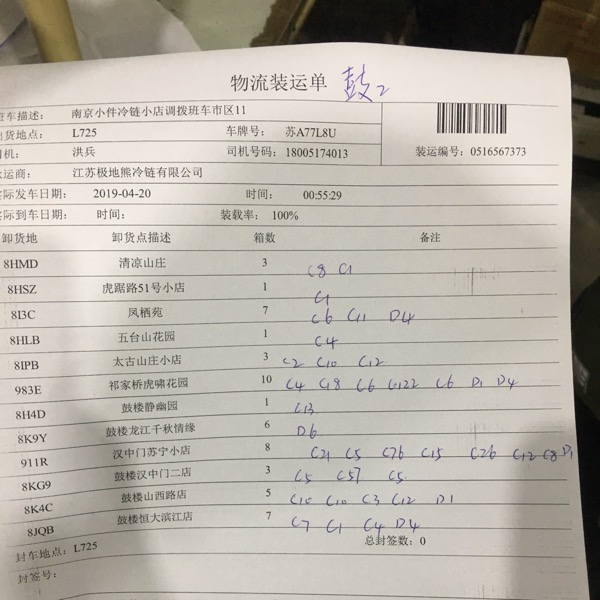 物流装运单 鼓2
班车描述： 南京小件冷链小店调拨班车市区11
出货地点： L725 车牌号： 苏A77L8U
司机： 洪兵 司机号码： 18005174013 装运编号： 0516567373
承运商： 江苏极地熊冷链有限公司
实际发车日期： 2019-04-20 时间： 00:55:29
实际到车日期： 时间： 装载率： 100%
卸货地 卸货点描述 箱数 备注
8HMD 清凉山庄 3 C8 C1
8HSZ 虎踞路51号小店 1 C1
8I3C 凤栖苑 7 C6 C11 D4
8HLB 五台山花园 1 C4
8IPB 太古山庄小店 3 C2 C10 C12
983E 祁家桥虎啸花园 10 C4 C18 C6 C122 C6 D1 D4
8H4D 鼓楼静幽园 1 C13
8K9Y 鼓楼龙江千秋情缘 6 D6
911R 汉中门苏宁小店 8 C21 C5 C26 C15 C26 C12 C8 D1
8KG9 鼓楼汉中门二店 3 C5 C57 C5
8K4C 鼓楼山西路店 5 C10 C10 C3 C12 D1
8JQB 鼓楼恒大滨江店 7 C7 C1 C4 D4
封车地点： L725 总封签数： 0
封签号：